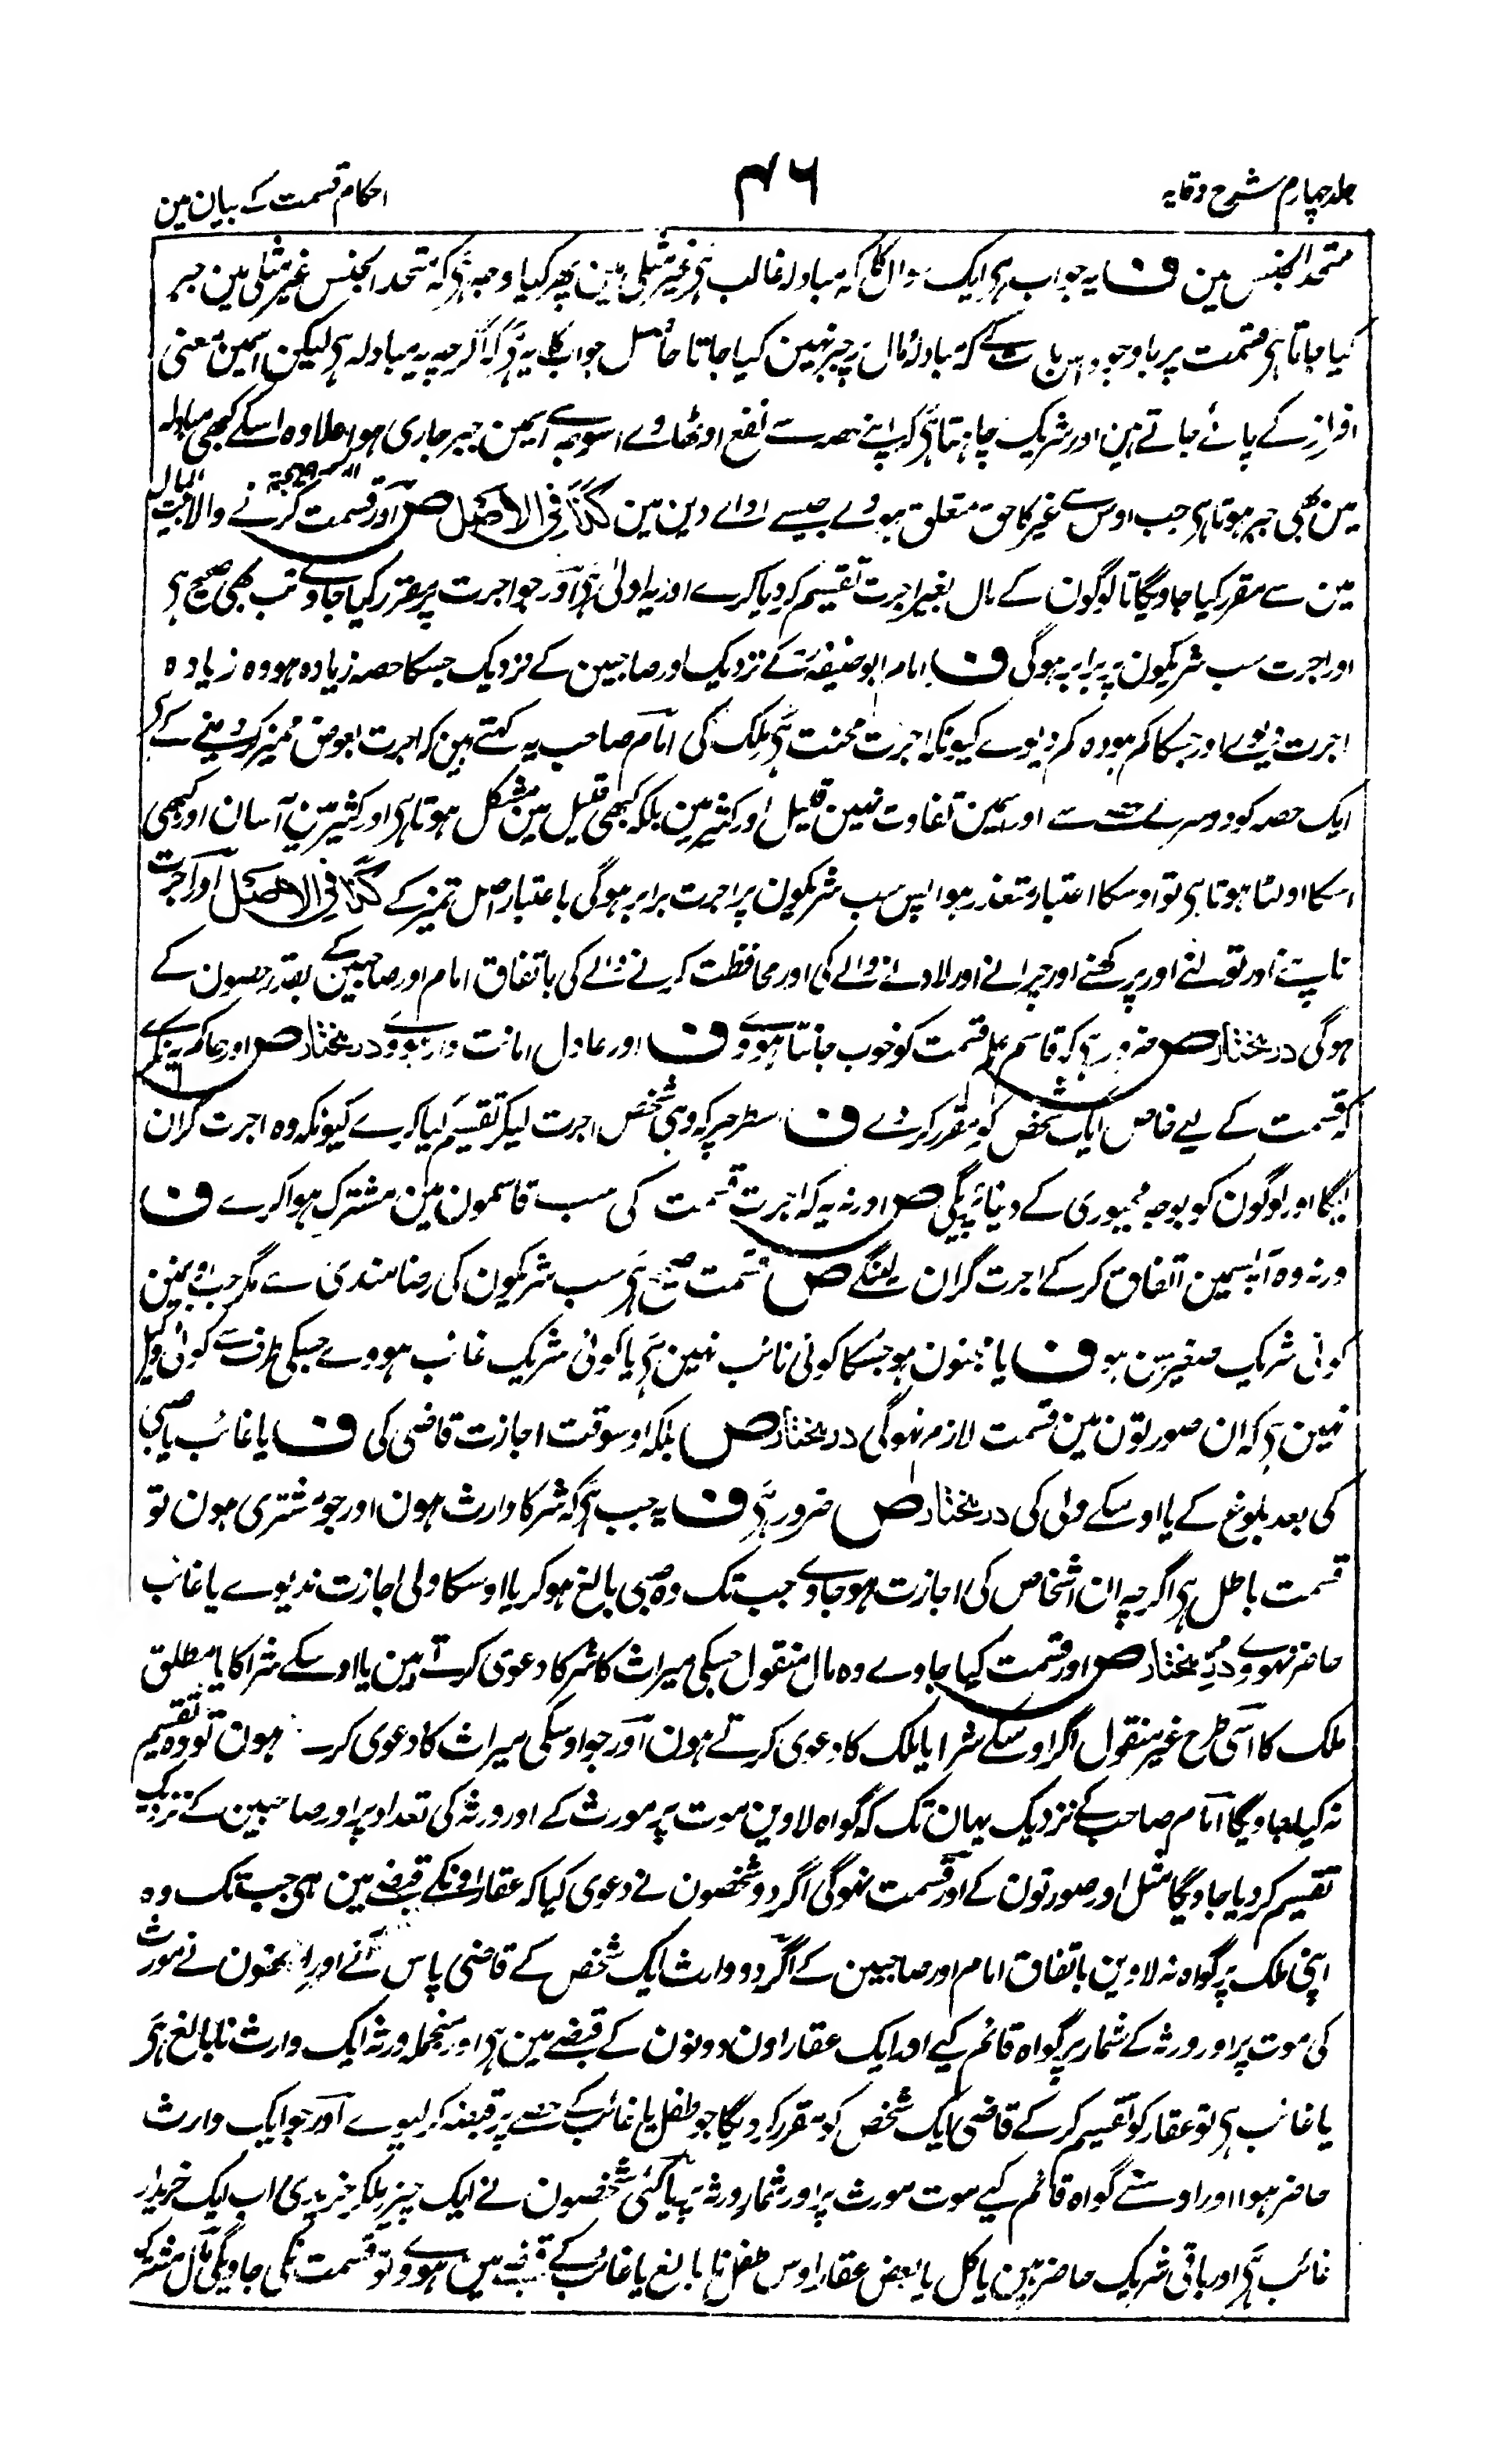 جلد چہارم شرح وقایہ
۴۶
احکام قسمت کے بیان مین
متحد الجنس مین ف یہ جواب ہی ایک سوال کا کہ مبادلہ غالب ہی غیر مثلی مین پھر کیا وجہ ہی کہ متحد الجنس غیر مثلی مین جبر
کیا جاتا ہی قسمت پر باوجود اس بات کے کہ مبادلۂ مال پر جبر نہین کیا جاتا حاصل جواب کا یہ ہی کہ اگرچہ یہ مبادلہ ہی لیکن اسمین معنی
افراز کے پائے جاتے ہین اور شریک چاہتا ہی کہ اپنے حصہ سے نفع اوٹھاوے اسوجہ سے اسمین جبر جاری ہوا علاوہ اسکے کبھی مبادلہ
مین بھی جبر ہوتا ہی جب اوس سے غیر کا حق متعلق ہووے جیسے ادائے دین مین کذا فی الاصل ص اور قسمت کرنے والا بیت المال
مین سے مقرر کیا جاویگا تا لوگون کے مال بغیر اجرت تقسیم کر دیا کرے اور یہ اولیٰ ہی اور جو اجرت پر مقرر کیا جاوے تب بھی صحیح ہی
اور اجرت سب شریکون پر برابر ہوگی ف امام ابو حنیفہ کے نزدیک اور صاحبین کے نزدیک جسکا حصہ زیادہ ہو وہ زیادہ
اجرت دیوے اور جسکا کم ہو وہ کم دیوے کیونکہ اجرت محنت ہی ملک کی امام صاحب یہ کہتے ہین کہ اجرت بعوض ممیز کر دینے کے ہی
ایک حصہ کو دوسرے حصے سے اور اسمین تفاوت نہین قلیل اور کثیر مین بلکہ کبھی قلیل مین مشکل ہوتا ہی اور کثیر مین آسان اور کبھی
اسکا اولٹا ہوتا ہی تو اوسکا اعتبار متعذر ہوا پس سب شریکون پر اجرت برابر ہوگی باعتبار اصل تمیز کے کذا فی الاصل اور اجرت
ناپنے اور تولنے اور پرکھنے اور چرانے اور لادنے والے کی اور محافظت کرنے والے کی باتفاق امام اور صاحبین کے بقدر حصون کے
ہوگی در مختار ص ضرور ہی کہ قاسم علم قسمت کو خوب جانتا ہووے ف اور عادل امانت دار ہووے در مختار ص اور حاکم یہ نکرے
کہ قسمت کے لیے خاص ایک شخص کو مقرر کر دے ف اسطرح پر کہ وہی شخص اجرت لیکر تقسیم کیا کرے کیونکہ وہ اجرت گران
لیگا اور لوگون کو بوجہ مجبوری کے دینا پڑیگی ص اور نہ یہ کہ اجرت قسمت کی سب قاسمون مین مشترک ہوا کرے ف
ورنہ وہ آپسمین اتفاق کر کے اجرت گران لینگے ص قسمت صحیح ہی سب شریکون کی رضامندی سے مگر جب اونمین
کوئی شریک صغیر سن ہو ف یا مجنون ہو جسکا کوئی نائب نہین ہی یا کوئی شریک غائب ہووے جسکی طرف سے کوئی وکیل
نہین ہی کہ ان صورتون مین قسمت لازم نہوگی در مختار ص بلکہ اوسوقت اجازت قاضی کی ف یا غائب یا صبی
کی بعد بلوغ کے یا اوسکے ولی کی در مختار ص ضرور ہی ف یہ جب ہی کہ شرکا وارث ہون اور جو مشتری ہون تو
قسمت باطل ہی اگرچہ ان اشخاص کی اجازت ہو جاوے جب تک وہ صبی بالغ ہو کر یا اوسکا ولی اجازت ندیوے یا غائب
حاضر نہووے در مختار ص اور قسمت کیا جاوے وہ مال منقول جسکی میراث کا شرکا دعوی کرتے ہین یا اوسکے شرا کا یا مطلق
ملک کا اسی طرح غیر منقول اگر اوسکے شرا یا ملک کا دعوی کرتے ہون اور جو اوسکی میراث کا دعوی کرتے ہون تو وہ تقسیم
نہ کیا جاویگا امام صاحب کے نزدیک یہان تک کہ گواہ لاوین موت پر مورث کے اور ورثہ کی تعداد پر اور صاحبین کے نزدیک
تقسیم کر دیا جاویگا مثل اور صورتون کے اور قسمت نہوگی اگر دو شخصون نے دعوی کیا کہ عقار اونکے قبضے مین ہی جب تک وہ
اپنی ملک پر گواہ نہ لاوین باتفاق امام اور صاحبین کے اگر دو وارث ایک شخص کے قاضی پاس آئے اور انھون نے مورث
کی موت پر اور ورثہ کے شمار پر گواہ قائم کیے اور ایک عقار اون دونون کے قبضے مین ہی اور منجملہ ورثہ ایک وارث نابالغ ہی
یا غائب ہی تو عقار کو تقسیم کر کے قاضی ایک شخص کو مقرر کر دیگا جو طفل یا غائب کے حصے پر قبضہ کر لیوے اور جو ایک وارث
حاضر ہوا اور اوسنے گواہ قائم کیے موت مورث پر اور شمار ورثہ پر یا کئی شخصون نے ایک چیز ملکر خریدی اب ایک خریدار
غائب ہی اور باقی شریک حاضر ہین یا کل یا بعض عقار اوس طفل نابالغ یا غائب کے قبضے مین ہووے تو قسمت نکی جاویگی مال مشترک